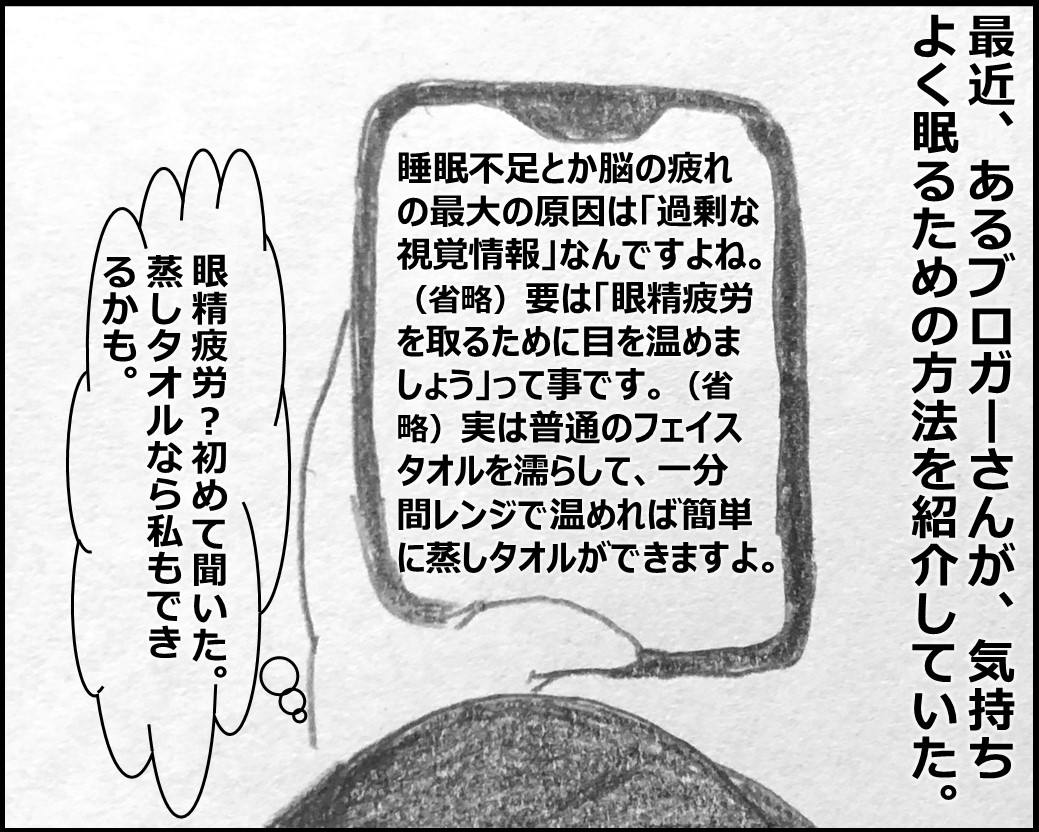 最近、あるブロガーさんが、気持ち
よく眠るための方法を紹介していた。
睡眠不足とか脳の疲れ
の最大の原因は「過剰な
視覚情報」なんですよね。
（省略）要は「眼精疲労
を取るために目を温めま
しょう」って事です。（省
略）実は普通のフェイス
タオルを濡らして、一分
間レンジで温めれば簡単
に蒸しタオルができますよ。
眼精疲労？初めて聞いた。
蒸しタオルなら私もでき
るかも。